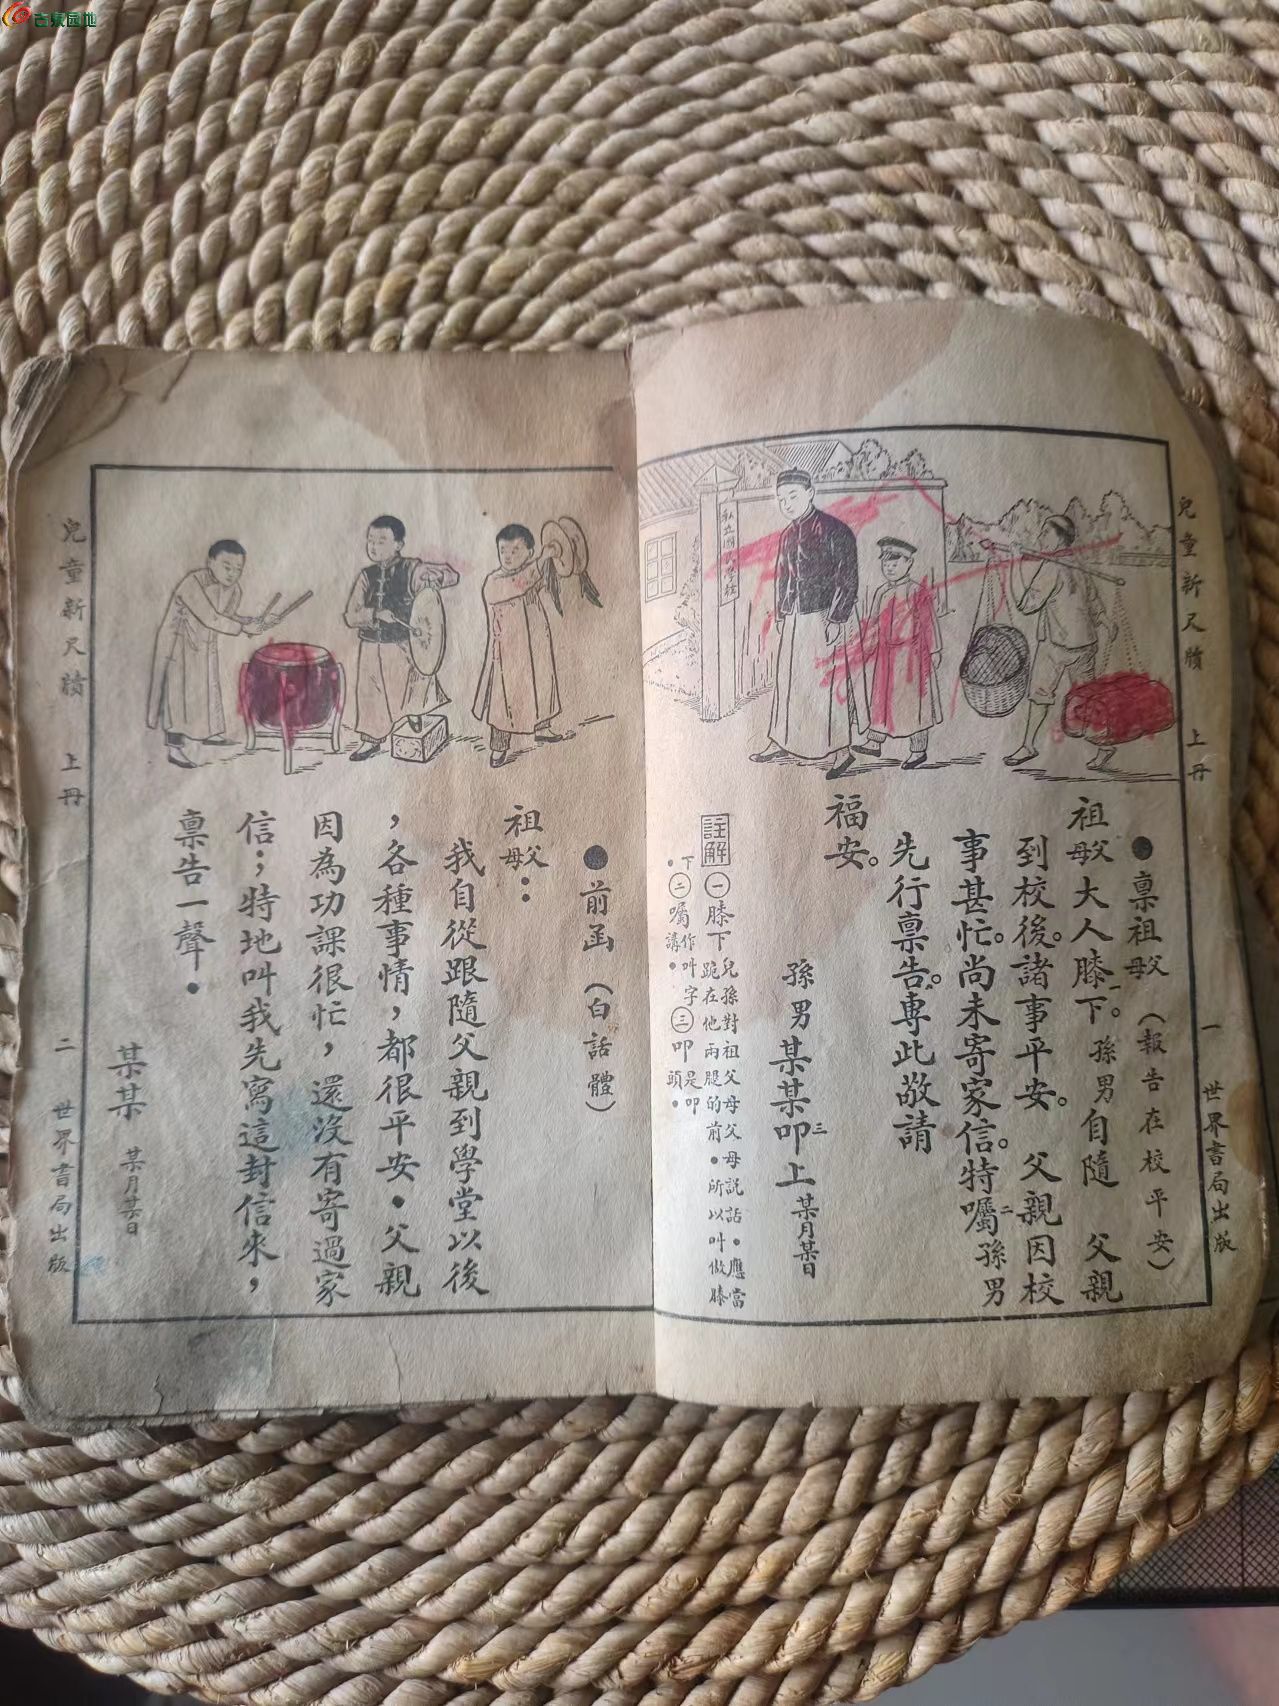 古泉园地
兒童新尺牘 上冊 一 世界書局出版
私立國民學校
●稟祖父母(報告在校平安)
祖父母大人膝下。孫男自隨 父親
到校後。諸事平安。 父親因校
事甚忙。尚未寄家信。特囑二孫男
先行稟告。專此敬請
福安。
孫男某某叩三上 某月某日
註解 ㊀膝下 兒孫對祖父母父母説話。應當
跪在他兩腿的前。所以叫做膝
下。㊁囑 作叫字講。㊂叩 是叩頭。
●前函(白話體)
祖父母:
我自從跟隨父親到學堂以後
,各種事情,都很平安.父親
因為功課很忙,還沒有寄過家
信;特地叫我先寫這封信來,
稟告一聲.
某某 某月某日
兒童新尺牘 上冊 二 世界書局出版